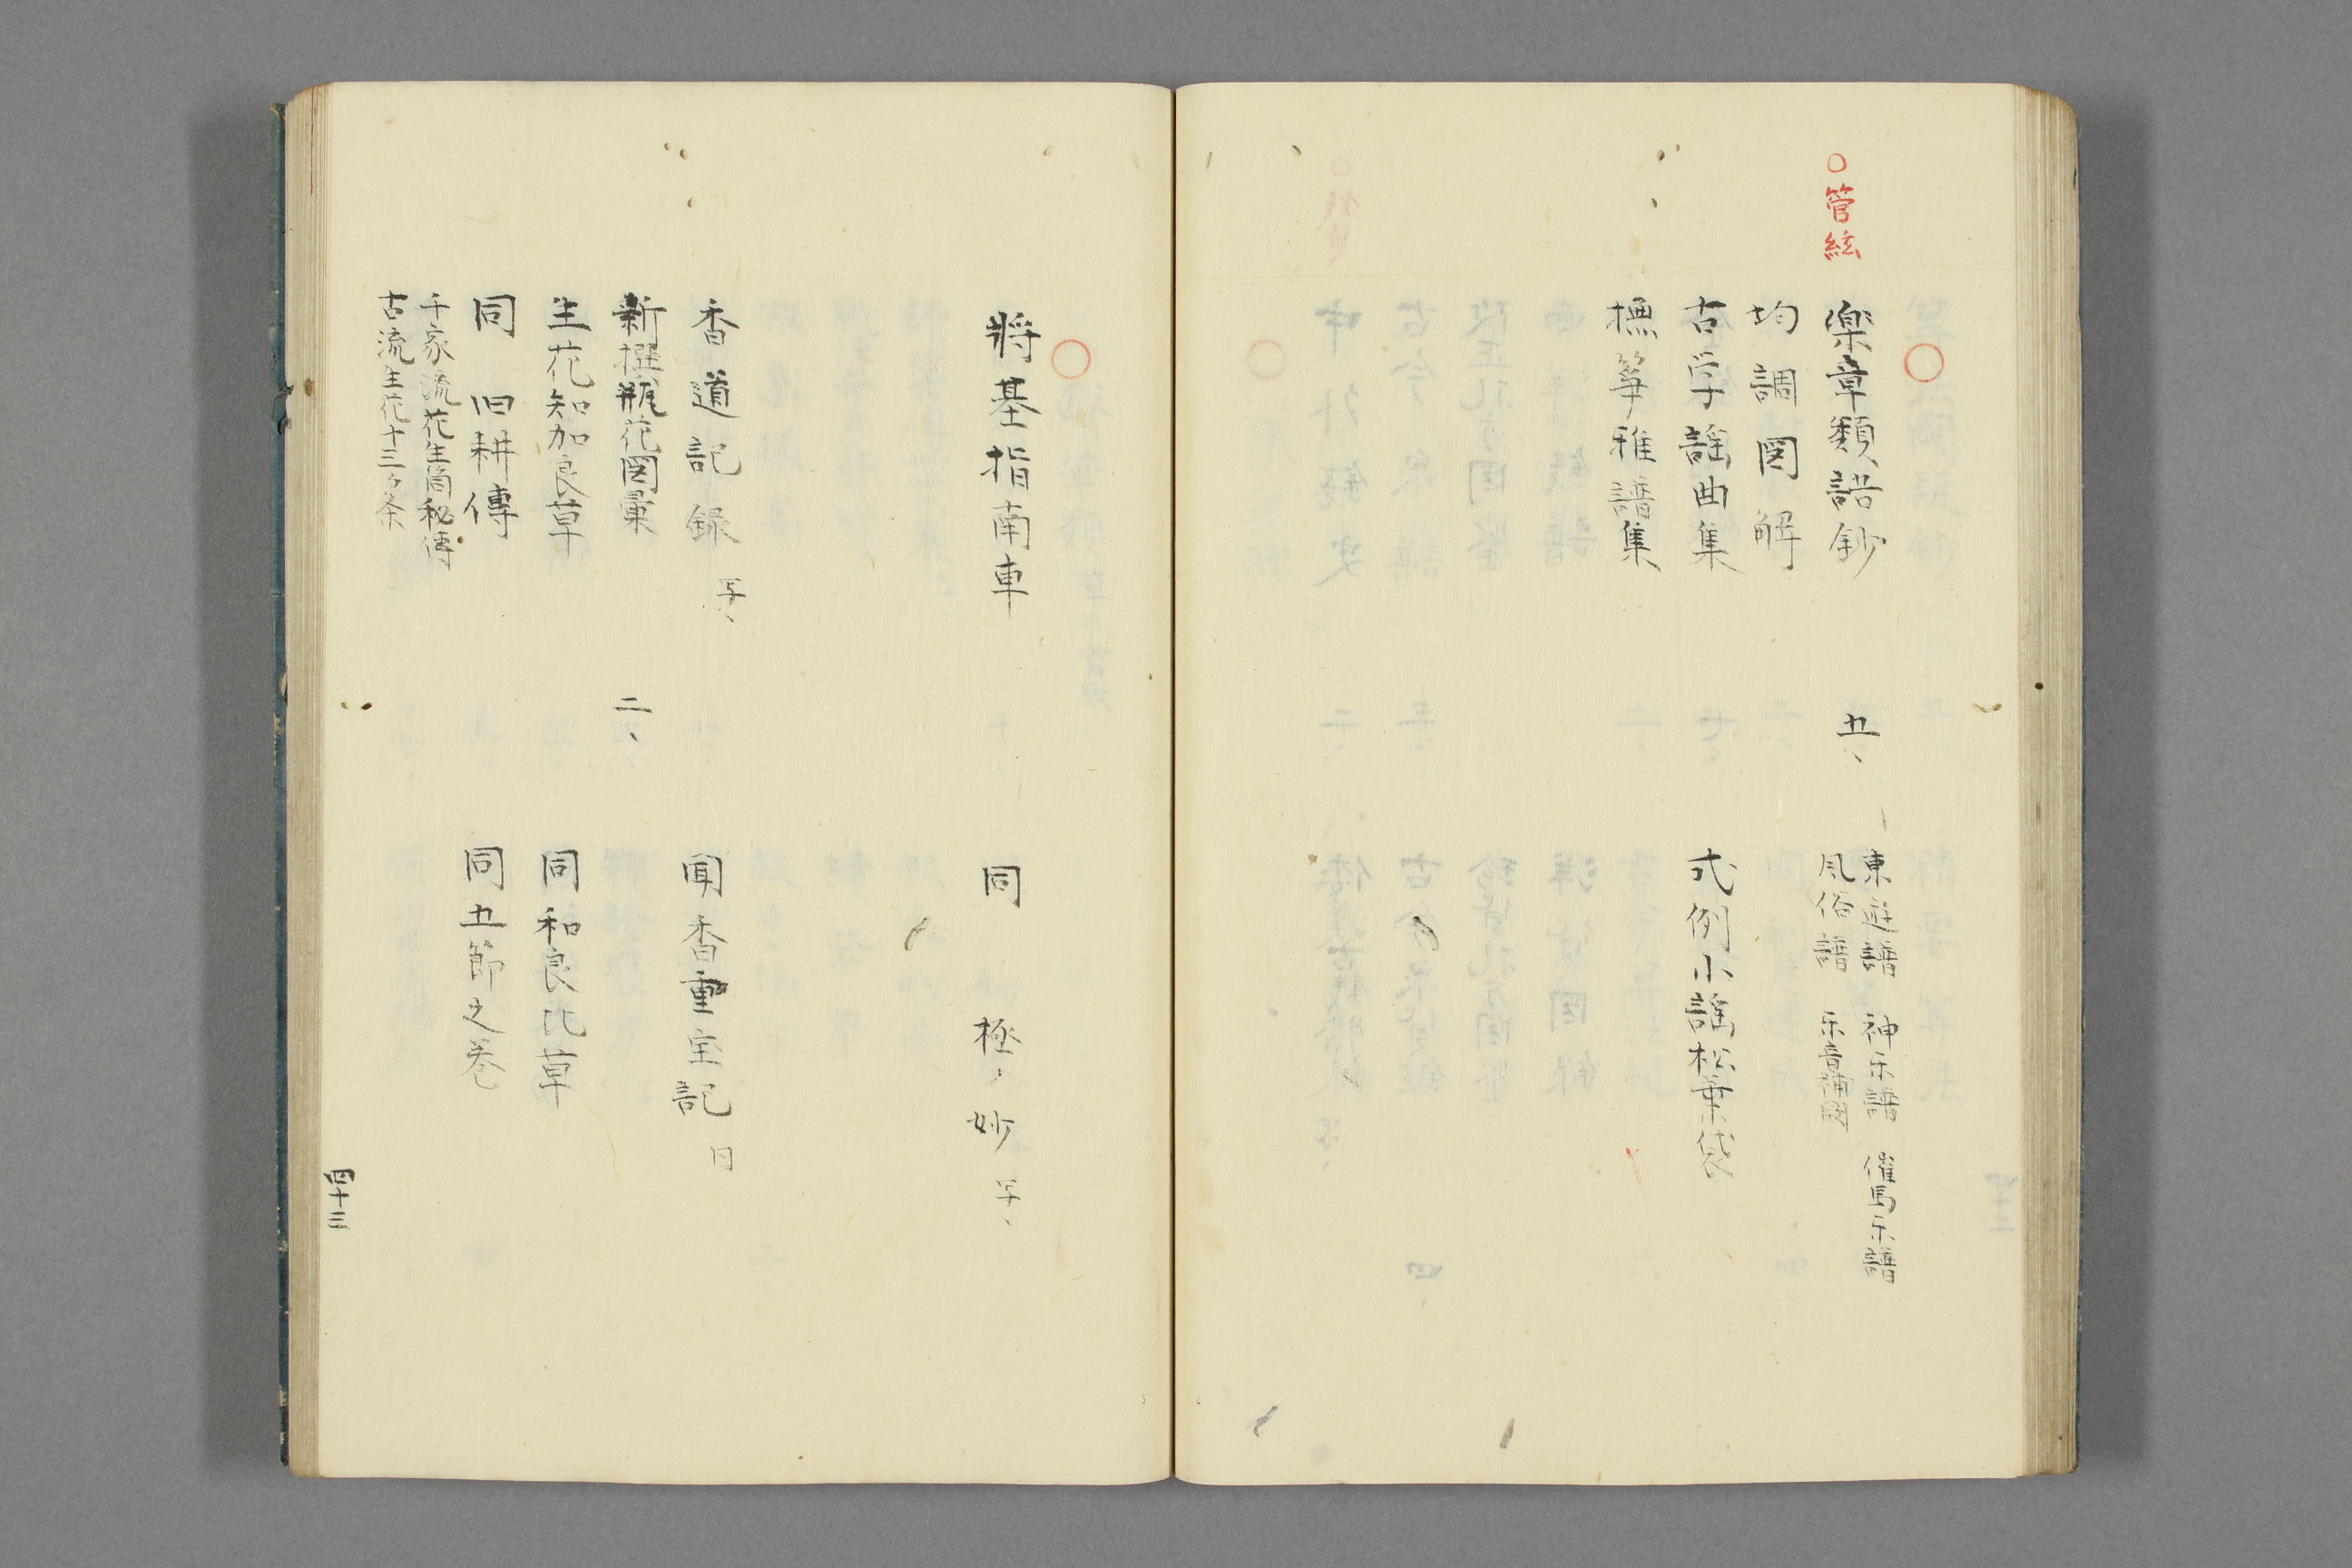 ○管絃
○
楽章類語鈔 五、
東遊譜 神乐譜 催馬乐譜
風俗譜 乐音補図
均調図解
古学謡曲集 式例小謡松葉袋
撫箏雅譜集
○
将基指南車 同 極妙 写、
香道記録 写、 聞香重宝記 日
新撰瓶花図彙 二、
生花知加良草 同和良比草
同 旧耕傳 同五節之巻
千家流花生筒秘傳
古流生花十三ケ条
四十三